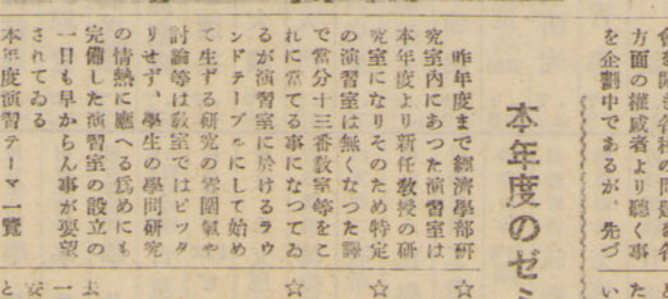 方面の權威者より聽く事
を企劃中であるが、先づ
本年度のゼミ
昨年度まで經濟學部研
究室内にあつた演習室は
本年度より新任教授の研
究室になりそのため特定
の演習室は無くなつた譯
で當分十三番教室等をこ
れに當てる事になつてゐ
るが演習室に於けるラウ
ンドテーブルにして始め
て生ずる研究の雰圍氣や
討論等は教室ではピツタ
りせず、學生の學問研究
の情熱に應へる爲めにも
完備した演習室の設立の
一日も早からん事が要望
されてゐる
本年度演習テーマ一覽
た
い
☆
☆
☆
一
と